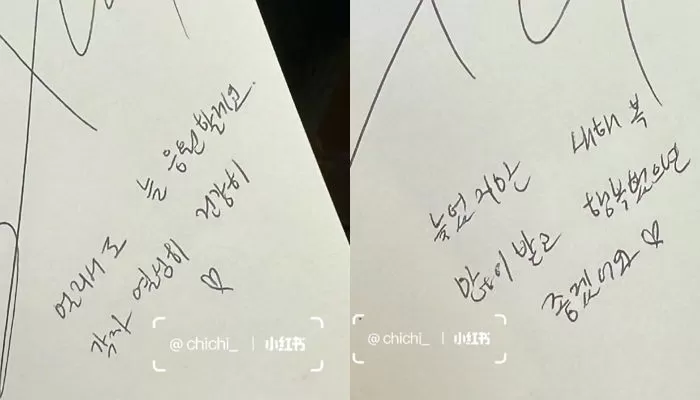 멀리서도 늘 응원할게요.
각자 열심히 건강히 ♡
@chichi_ | 小红书
늦었지만 새해 복
많이 받고 행복했으면
좋겠어요 ♡
@chichi_ | 小红书